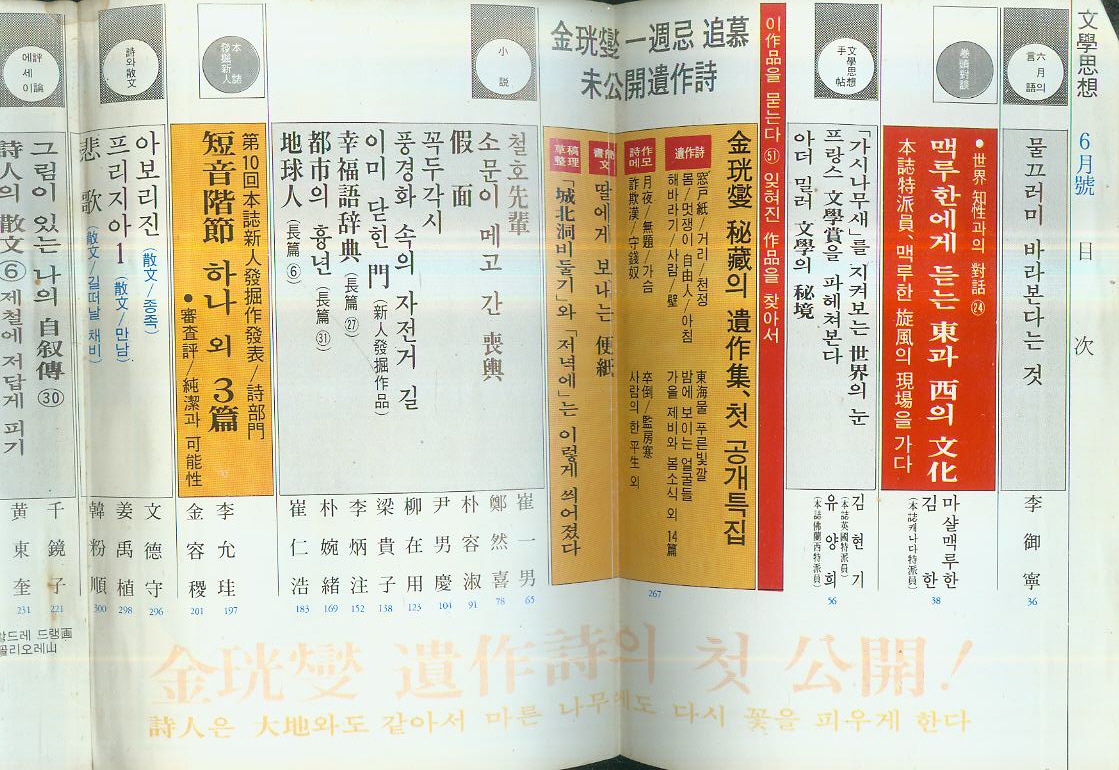 文學思想
6月號
目
次
六月의
言語
물끄러미 바라본다는 것
李御寧
36
卷頭對談
●世界 知性과의 對話 ㉔
맥루한에게 듣는 東과 西의 文化
本誌特派員、맥루한 旋風의 現場을 가다
마샬맥루한
김한
(本誌캐나다特派員)
38
文學思想
手帖
「가시나무새」를 지켜보는 世界의 눈
프랑스 文學賞을 파헤쳐본다
아더 밀러 文學의 秘境
김현기
(本誌英國特派員)
유양희
(本誌佛蘭西特派員)
56
이 作品을 묻는다 51 잊혀진 作品을 찾아서
金珖燮 一週忌 追慕
未公開遺作詩
金珖燮 秘藏의 遺作集、첫 공개특집
遺作詩
窓戸紙/거리/천정
봄/멋쟁이 自由人/아침
해바라기/사람/壁
東海물 푸른빛깔
밤에 보이는 얼굴들
가을 제비와 봄소식 외 14篇
詩作
메모
月夜/無題/가슴
詐欺漢/守錢奴
卒倒/監房寒
사람의 한 平生 외
書簡文
딸에게 보내는 便紙
草稿
整理
「城北洞비둘기」와 「저녁에」는 이렇게 씌어졌다
267
小說
철호先輩
崔一男
65
소문이 메고 간 喪輿
鄭然喜
78
假面
朴容淑
91
꼭두각시
尹男慶
104
풍경화 속의 자전거 길
柳在用
123
이미 닫힌 門 (新人發掘作品)
梁貴子
138
幸福語辞典 (長篇㉗)
李炳注
152
都市의 흉년 (長篇㉛)
朴婉緖
169
地球人 (長篇⑥)
崔仁浩
183
本誌
發掘新人
第10回本誌新人發掘作發表/詩部門
短音階節 하나 외 3篇
李允珪
197
●審査評/純潔과 可能性
金容稷
201
詩와散文
아보리진 (散文/종족)
文德守
296
프리지아 1 (散文/만남)
姜禹植
298
悲歌 (散文/길떠날 채비)
韓粉順
300
評論
에세이
그림이 있는 나의 自叙傳 ㉚
千鏡子
221
詩人의 散文 ⑥ 제철에 저답게 피기
黃東奎
231
드랭画
골리오레山
金珖燮 遺作詩의 첫 公開!
詩人은 大地와도 같아서 마른 나무에도 다시 꽃을 피우게 한다